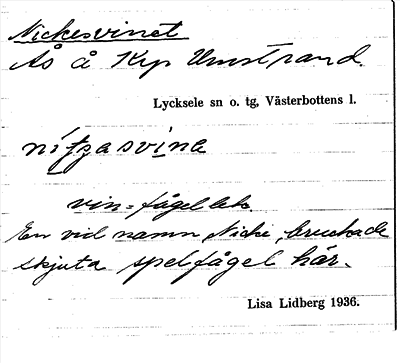 Nickesvinet
Ås å Kyp Umstrand.
Lycksele sn o. tg, Västerbottens l.
nítzasvina
vin = fågellek.
En vid namn Nicke, brukade
skjuta spelfågel här.
Lisa Lidberg 1936.